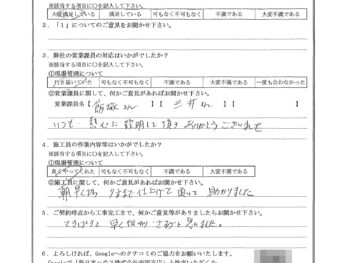 ※該当する項目に○を入れて下さい。
大変満足している 満足している 可もなく不可もなく 不満である 大変不満である
2.「1」についてのご意見をお聞かせ下さい。
3. 弊社の営業課員の対応はいかがでしたか?
※該当する項目に○を入れて下さい。
①現場管理について
行き届いていた 可もなく不可もなく 不満である 大変不満である 一度も会わなかった
②営業課員に関して、何かご意見があればお聞かせ下さい。
営業課員名【 飯塚さん 】【 三井さん 】
いつも 熱心に 説明して頂き ありがとうございます
4. 施工員の作業内容等はいかがでしたか?
※該当する項目に○を入れて下さい。
①現場管理について
良くやってくれた 可もなく不可もなく 不満である 大変不満である
②施工員に関して、何かご意見があればお聞かせ下さい。
朝早くから 仕上げて 助かりました
5. ご契約時点から工事完工まで、何かご意見等がありましたらお聞かせ下さい。
てきぱきと 早く と思いました。
6. よろしければ、Googleへのクチコミのご協力をお願いいたします。